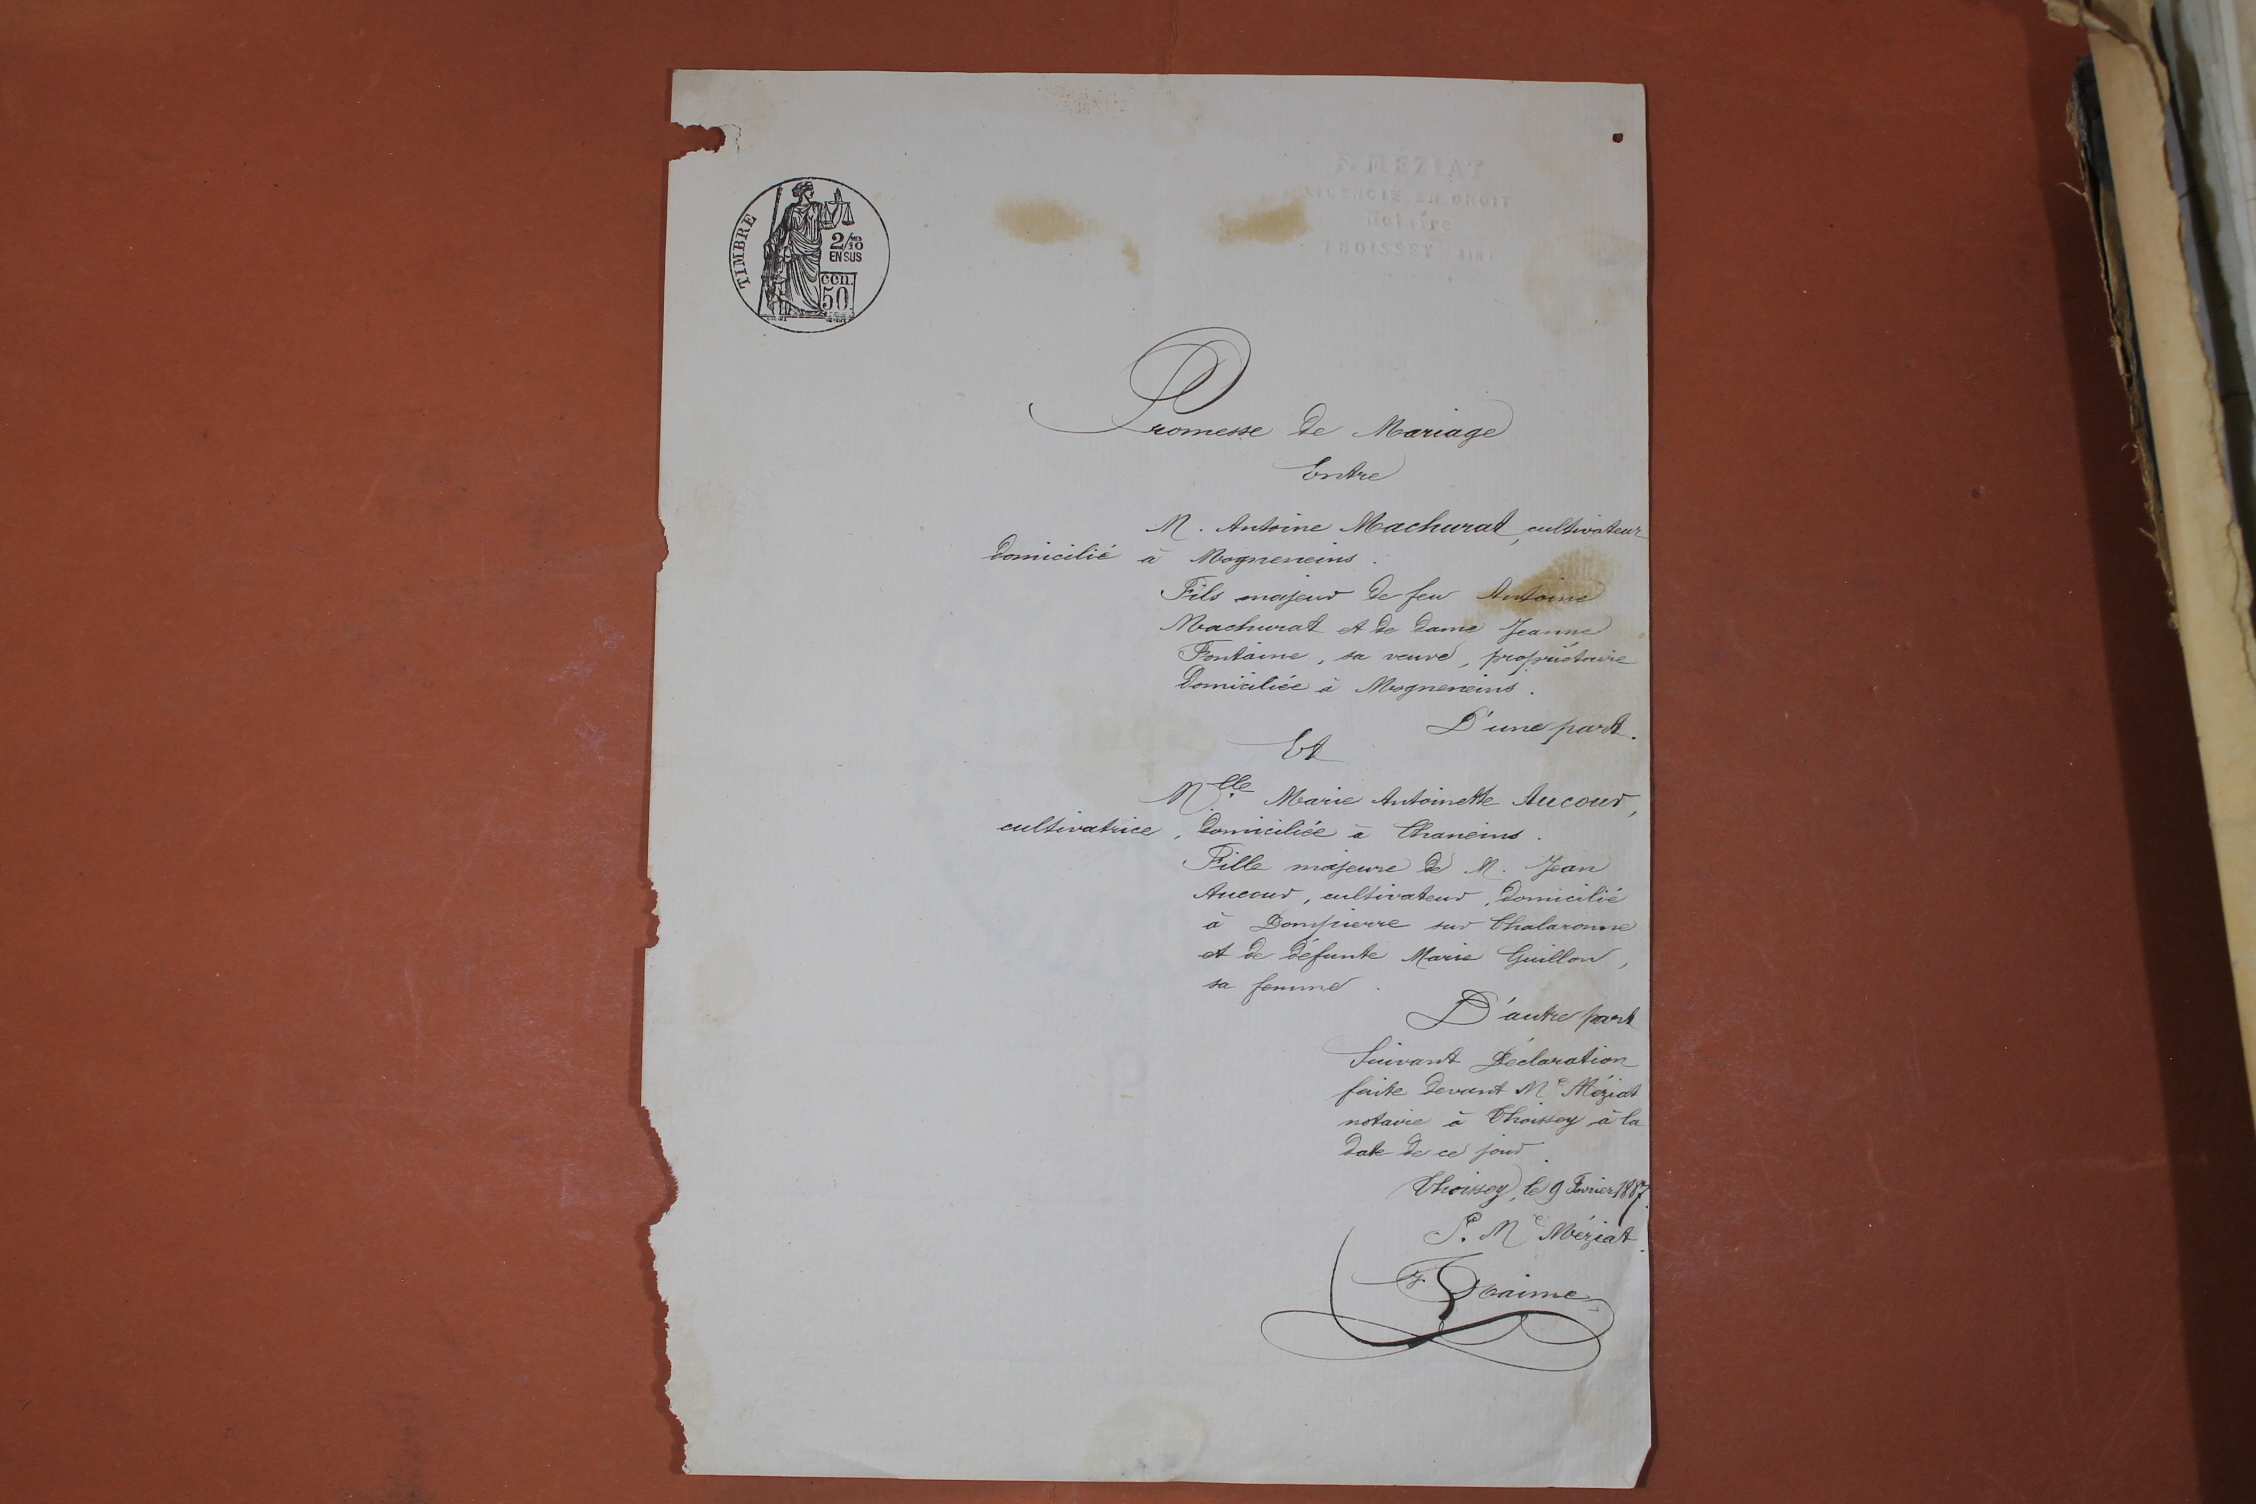 TIMBRE
2/10 EN SUS
cen. 50
MÉZIAT
LICENCIÉ EN DROIT
Notaire
THOISSEY (AIN)
Promesse de Mariage
Entre
M. Antoine Machurat, cultivateur
domicilié à Mogneneins.
Fils majeur de feu Antoine
Machurat et de dame Jeanne
Fontaine, sa veuve, propriétaire
domiciliée à Mogneneins.
D'une part.
Et
Mlle Marie Antoinette Aucour,
cultivatrice, domiciliée à Chaneins.
Fille majeure de M. Jean
Aucour, cultivateur, domicilié
à Dompierre sur Chalaronne
et de défunte Marie Guillon,
sa femme.
D'autre part
Suivant Déclaration
faite devant Me Méziat
notaire à Thoissey à la
date de ce jour
Thoissey, le 9 Février 1887.
P. Me Méziat.